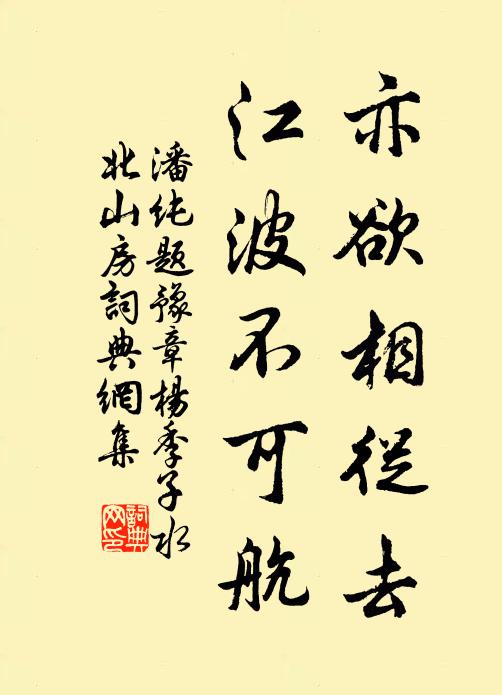 亦欲相從去
江波不可航
潘純題豫章楊季子水
北山房詞典網集
詞典网印